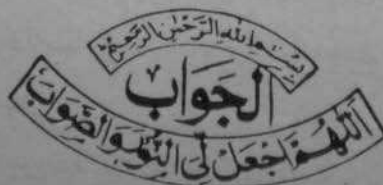 بِسْمِ اللهِ الرَّحْمٰنِ الرَّحِيْمِ
الجَوَاب
اَللّٰهُمَّ اجْعَلْ لِّى النُّوْرَ وَالصَّوَابَ